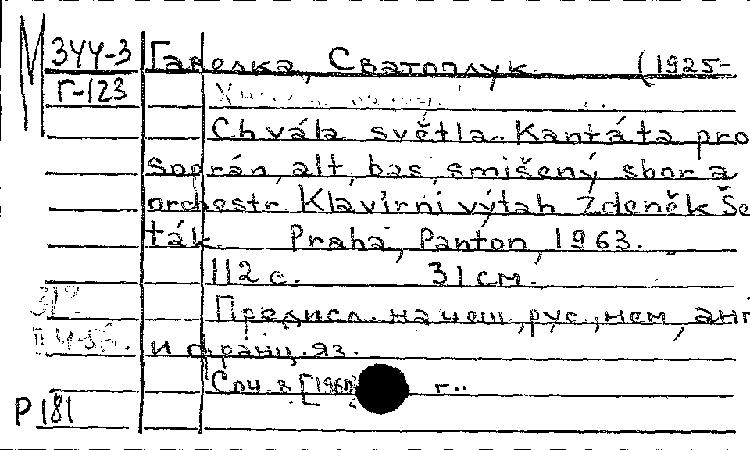 М 344-3 Гавелка, Сватоплук (1925-
Г-123
Chvála světla. Kantáta pro
soprán, alt, bas, smíšený sbor a
orchestr. Klavírní výtah Zdeněk Še
ták. Praha, Panton, 1963.
112 с. 31 см.
Предисл. на чеш., рус., нем., анг
и франц. яз.
Соч. в [1960] г.
Р 181